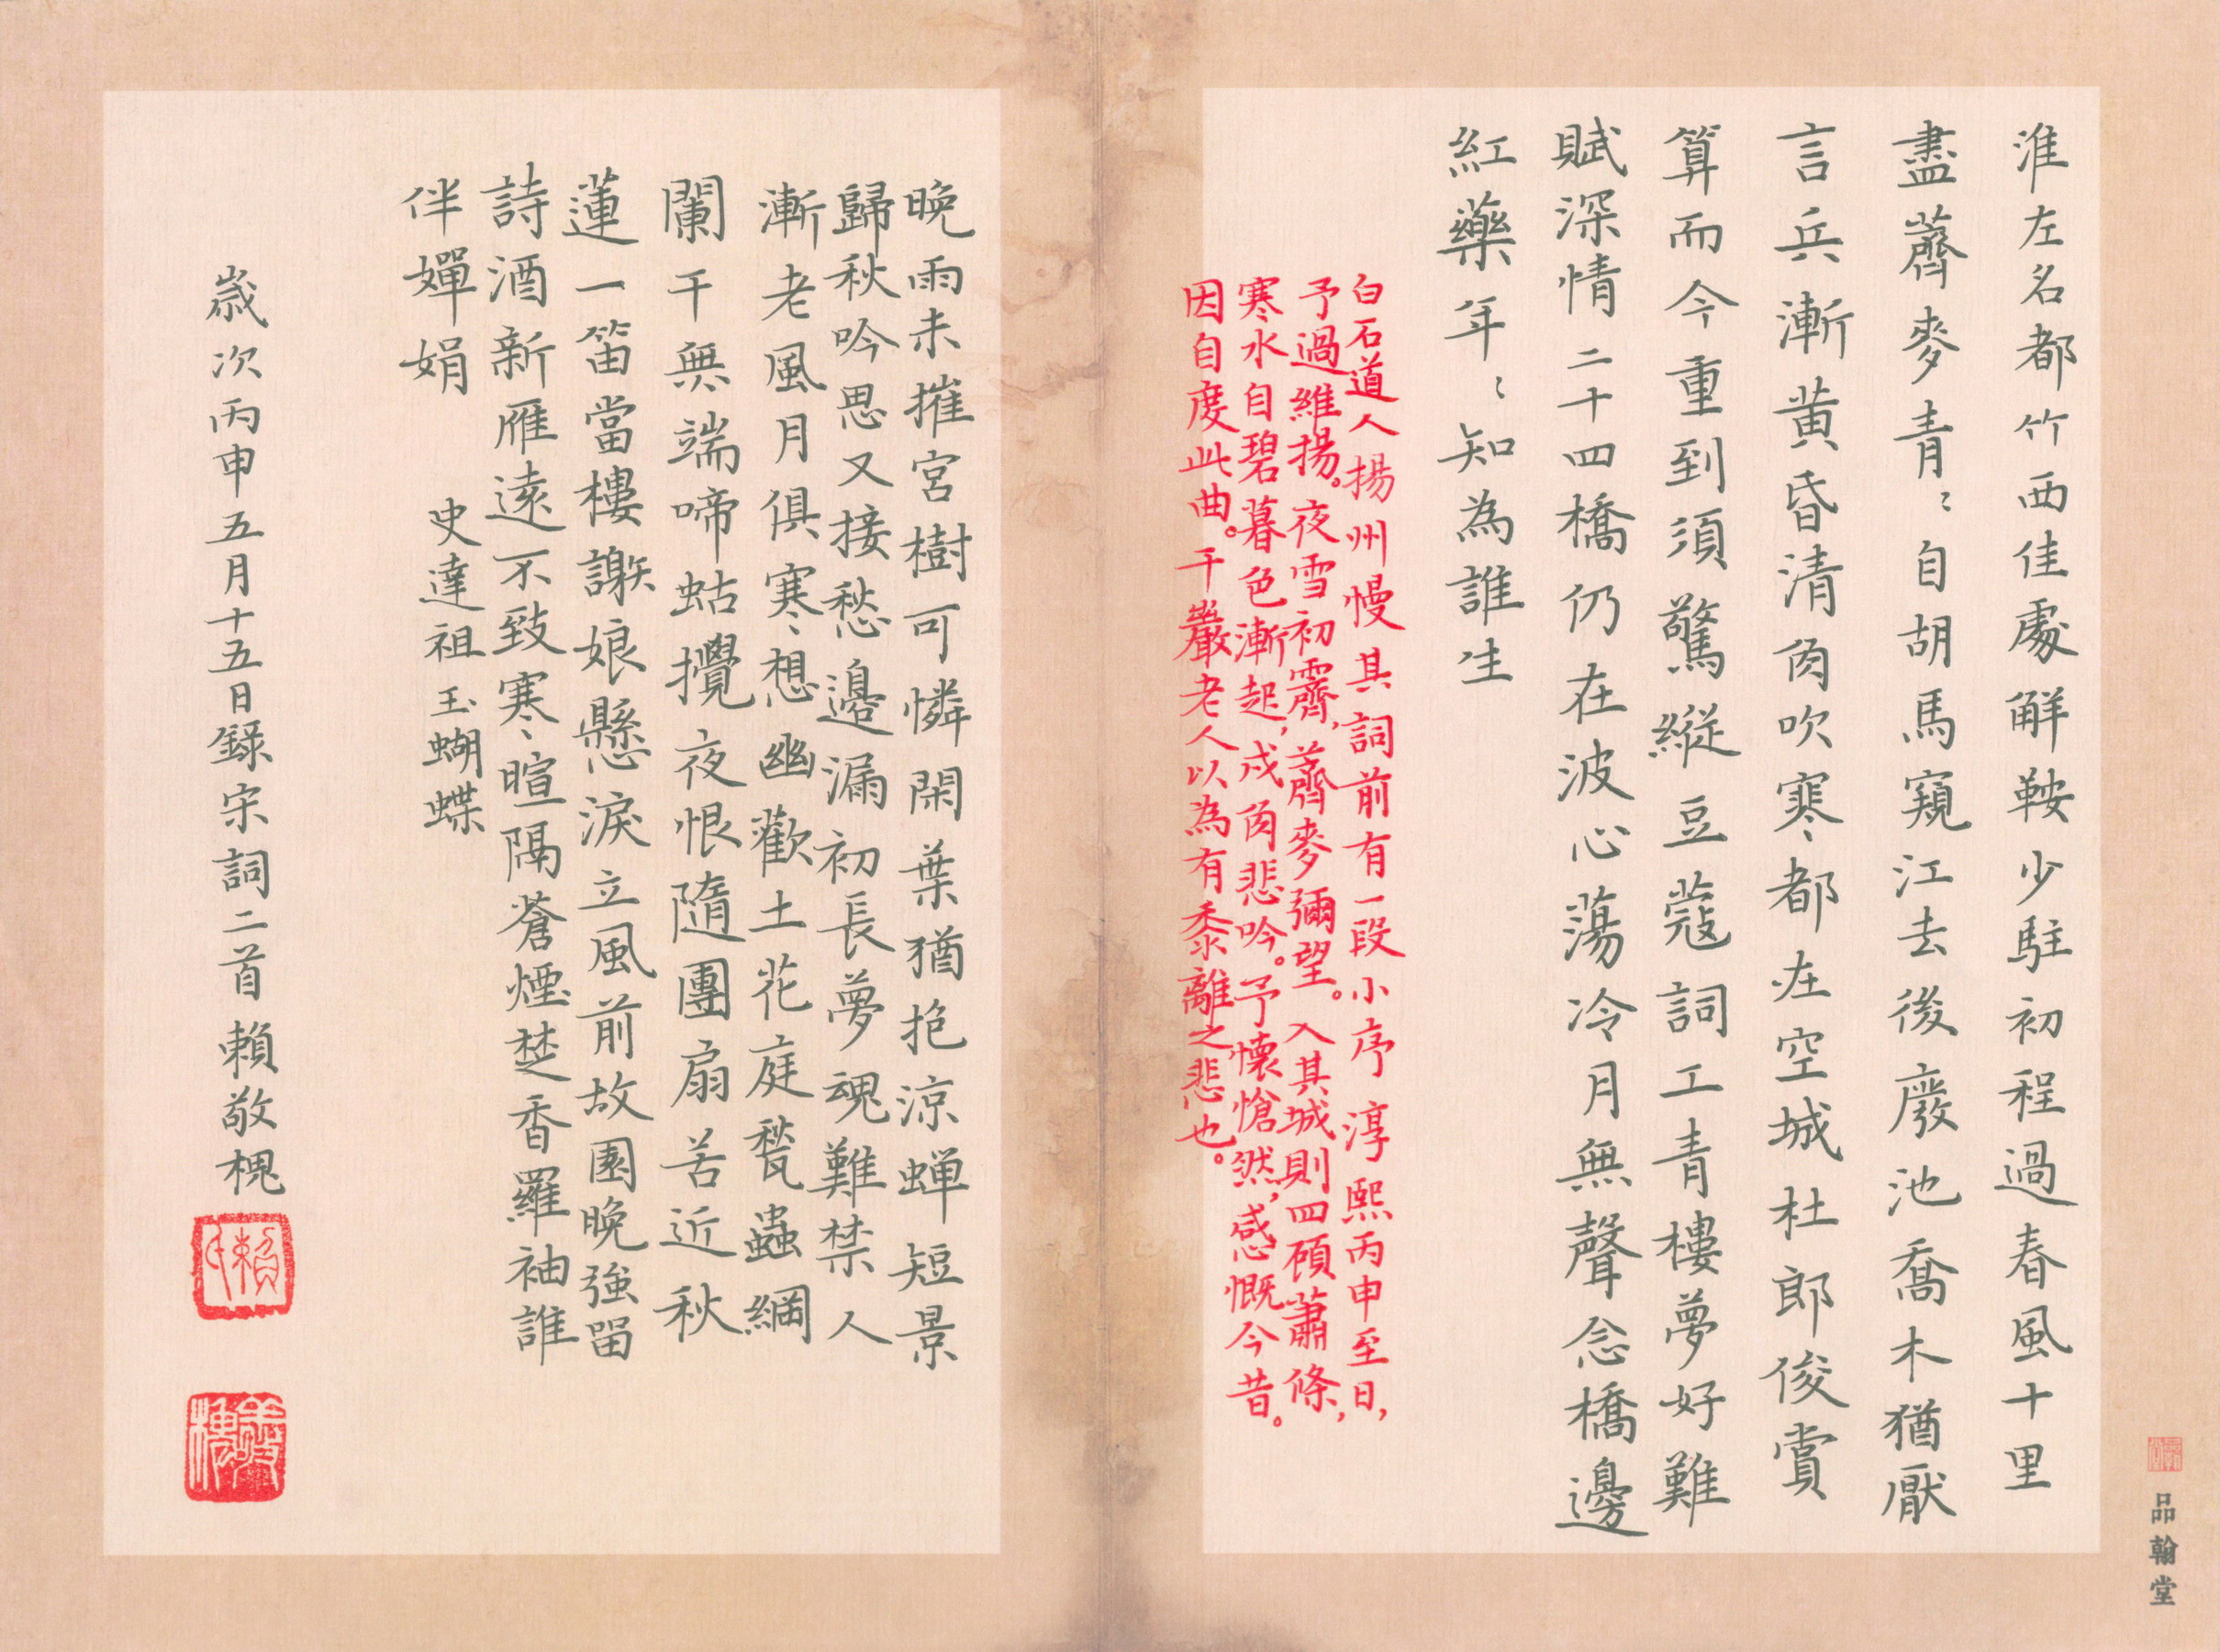 淮左名都竹西佳處解鞍少駐初程過春風十里
盡薺麥青〻自胡馬窺江去後廢池喬木猶厭
言兵漸黃昏清角吹寒都在空城杜郎俊賞
算而今重到須驚縱豆蔻詞工青樓夢好難
賦深情二十四橋仍在波心蕩冷月無聲念橋邊
紅藥年〻知為誰生
白石道人揚州慢其詞前有一段小序 淳熙丙申至日,
予過維揚。夜雪初霽,薺麥彌望。入其城則四顧蕭條,
寒水自碧。暮色漸起,戍角悲吟。予懷愴然,感慨今昔。
因自度此曲。千巖老人以為有黍離之悲也。
晚雨未摧宮樹可憐閑葉猶抱涼蟬短景
歸秋吟思又接愁邊漏初長夢魂難禁人
漸老風月俱寒想幽歡土花庭甃蟲網
闌干無端啼蛄攪夜恨隨團扇苦近秋
蓮一笛當樓謝娘懸淚立風前故園晚強留
詩酒新雁遠不致寒暄隔蒼煙楚香羅袖誰
伴嬋娟
史達祖 玉蝴蝶
歲次丙申五月十五日錄宋詞二首 賴敬槐
賴氏
敬槐
品翰堂